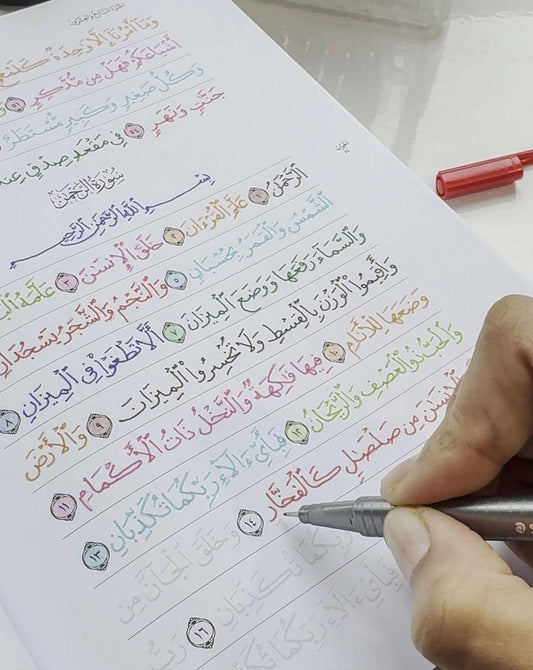 وَمَآ أَمْرُنَآ إِلَّا وَٰحِدَةٌ كَلَمْحٍ
أَشْيَاعَكُمْ فَهَلْ مِن مُّدَّكِرٍ ٥١
وَكُلُّ صَغِيرٍ وَكَبِيرٍ مُّسْتَطَرٌ
جَنَّٰتٍ وَنَهَرٍ ٥٤ فِى مَقْعَدِ صِدْقٍ عِندَ
سُورَةُ الرَّحْمَٰن
بِسْمِ ٱللَّهِ ٱلرَّحْمَٰنِ ٱلرَّحِيمِ
ٱلرَّحْمَٰنُ ١ عَلَّمَ ٱلْقُرْءَانَ ٢ خَلَقَ ٱلْإِنسَٰنَ ٣ عَلَّمَهُ
ٱلشَّمْسُ وَٱلْقَمَرُ بِحُسْبَانٍ ٥ وَٱلنَّجْمُ وَٱلشَّجَرُ يَسْجُدَانِ
وَٱلسَّمَآءَ رَفَعَهَا وَوَضَعَ ٱلْمِيزَانَ ٧ أَلَّا تَطْغَوْا۟ فِى ٱلْمِيزَانِ ٨
وَأَقِيمُوا۟ ٱلْوَزْنَ بِٱلْقِسْطِ وَلَا تُخْسِرُوا۟ ٱلْمِيزَانَ ٩ وَٱلْأَرْضَ
وَضَعَهَا لِلْأَنَامِ ١٠ فِيهَا فَٰكِهَةٌ وَٱلنَّخْلُ ذَاتُ ٱلْأَكْمَامِ ١١
وَٱلْحَبُّ ذُو ٱلْعَصْفِ وَٱلرَّيْحَانُ ١٢ فَبِأَىِّ ءَالَآءِ رَبِّكُمَا تُكَذِّبَانِ ١٣
ٱلْإِنسَٰنَ مِن صَلْصَٰلٍ كَٱلْفَخَّارِ ١٤ وَخَلَقَ ٱلْجَآنَّ مِن
رَبِّكُمَا تُكَذِّبَانِ ١٦ رَبُّ
فَبِأَىِّ ءَالَآءِ رَبِّكُمَا